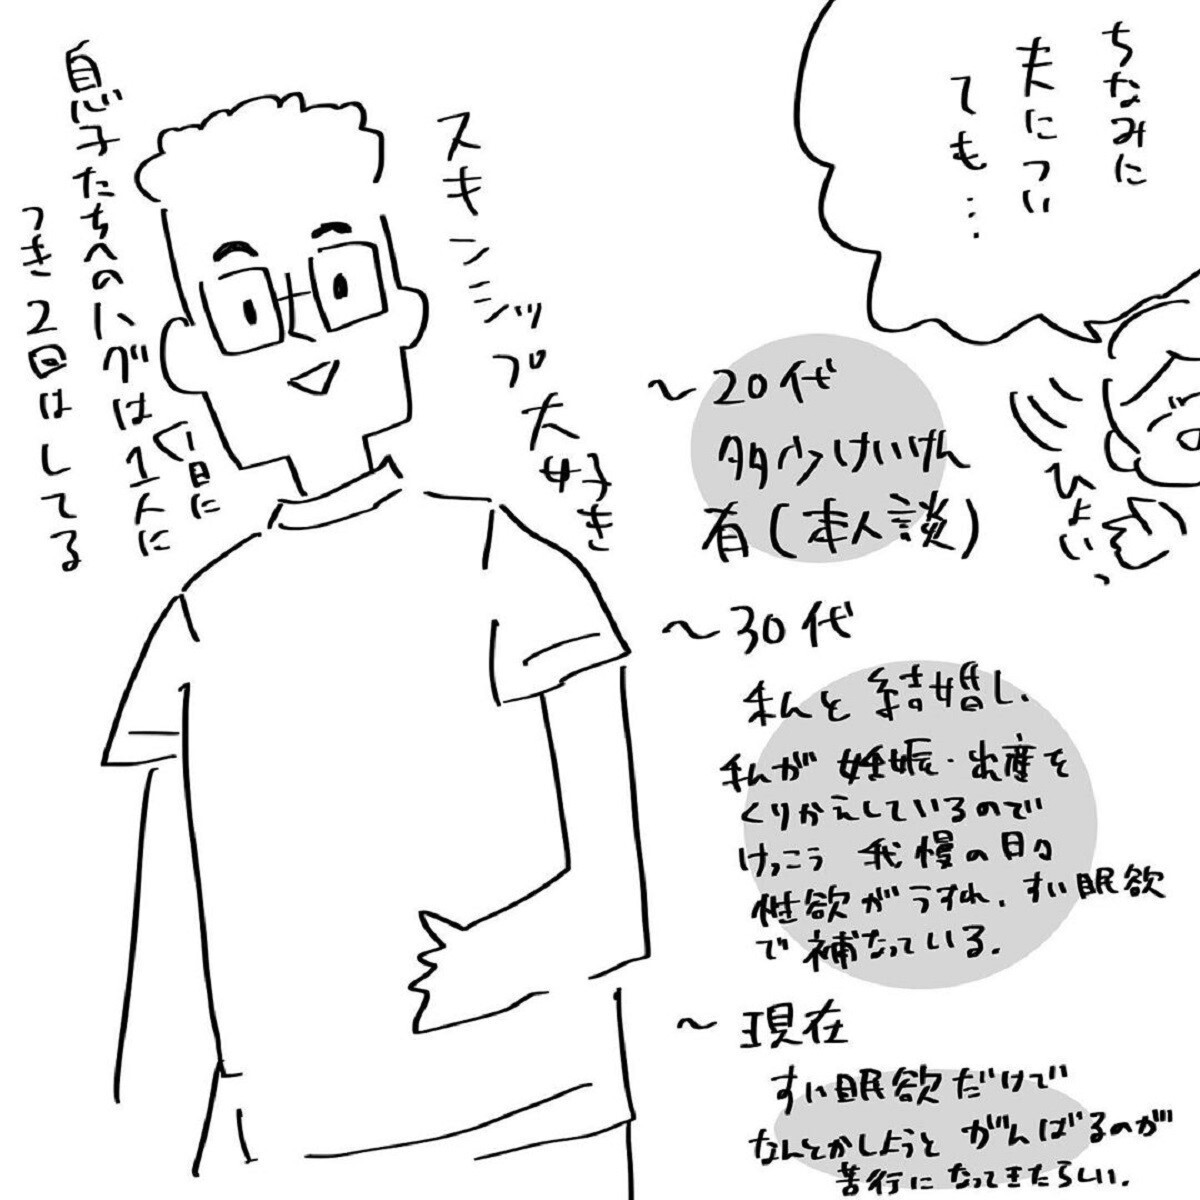 ちなみに
夫につい
ても…
ひょいっ
スキンシップ大好き
息子たちへのハグは1人に
つき2回はしてる
1日に
〜20代
タタウンけいけん
有(本人談)
〜30代
私と結婚し、
私が妊娠・出産を
くりかえしているので
けっこう我慢の日々
性欲がうすれ、すい眠欲
で補なっている。
〜現在
すい眠欲だけで
なんとかしようとがんばるのが
苦行になってきたらしい。